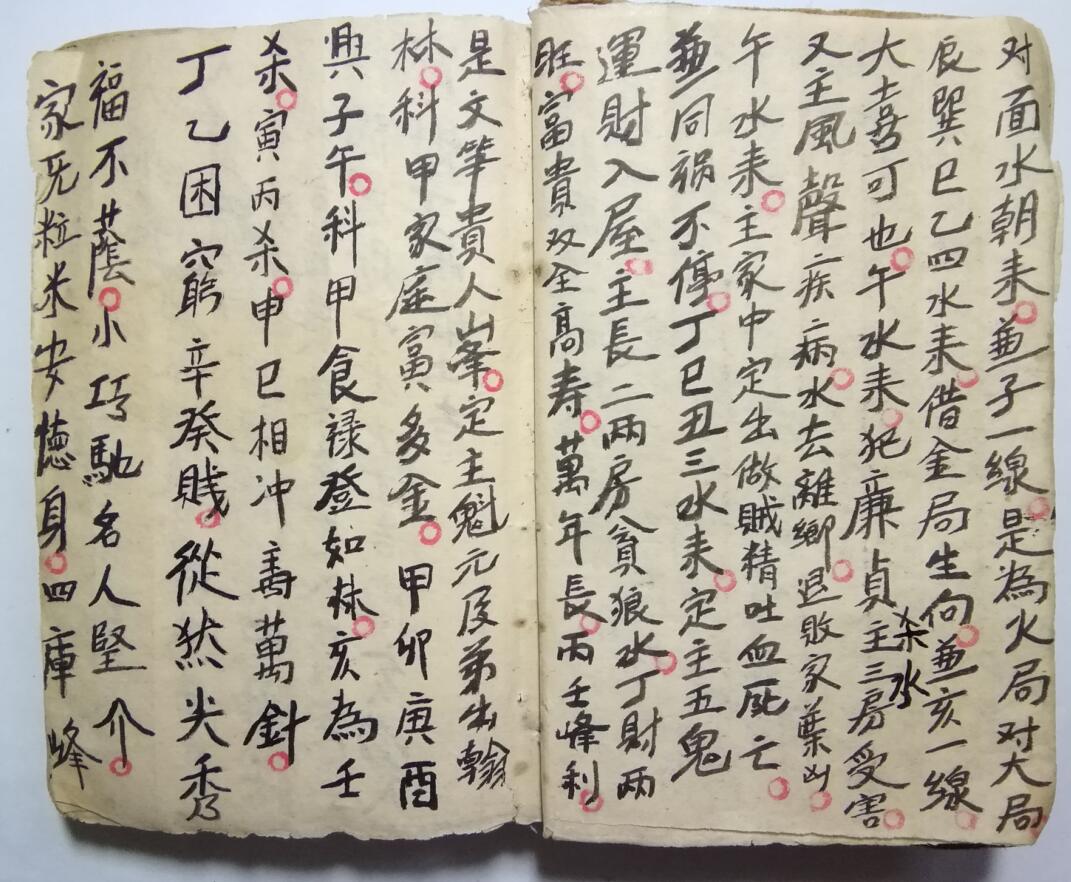 对面水朝耒兼子一線是為火局对大局
辰巽巳乙四水耒借金局生向兼亥一線
大喜可也午水耒犯廉貞主三房受害
杀水
又主風聲疾病水去離鄉退敗家業凶
午水耒主家中定出做賊精吐血死亡
兼同禍不停丁巳丑三水耒定主五鬼
運財入屋主長二两房貪狼水丁財两
旺富貴双全高寿萬年長丙壬峰利
是文筆貴人山峯定主魁元及弟出翰
林科甲家庭寅多金甲卯庚酉
興子午科甲食禄登如林亥為壬
杀寅丙杀申巳相冲壽萬針
丁乙困穷辛癸賤從然尖秀
福不蔭小巧馳名人堅个
家旡粒米安憶身四庫峰